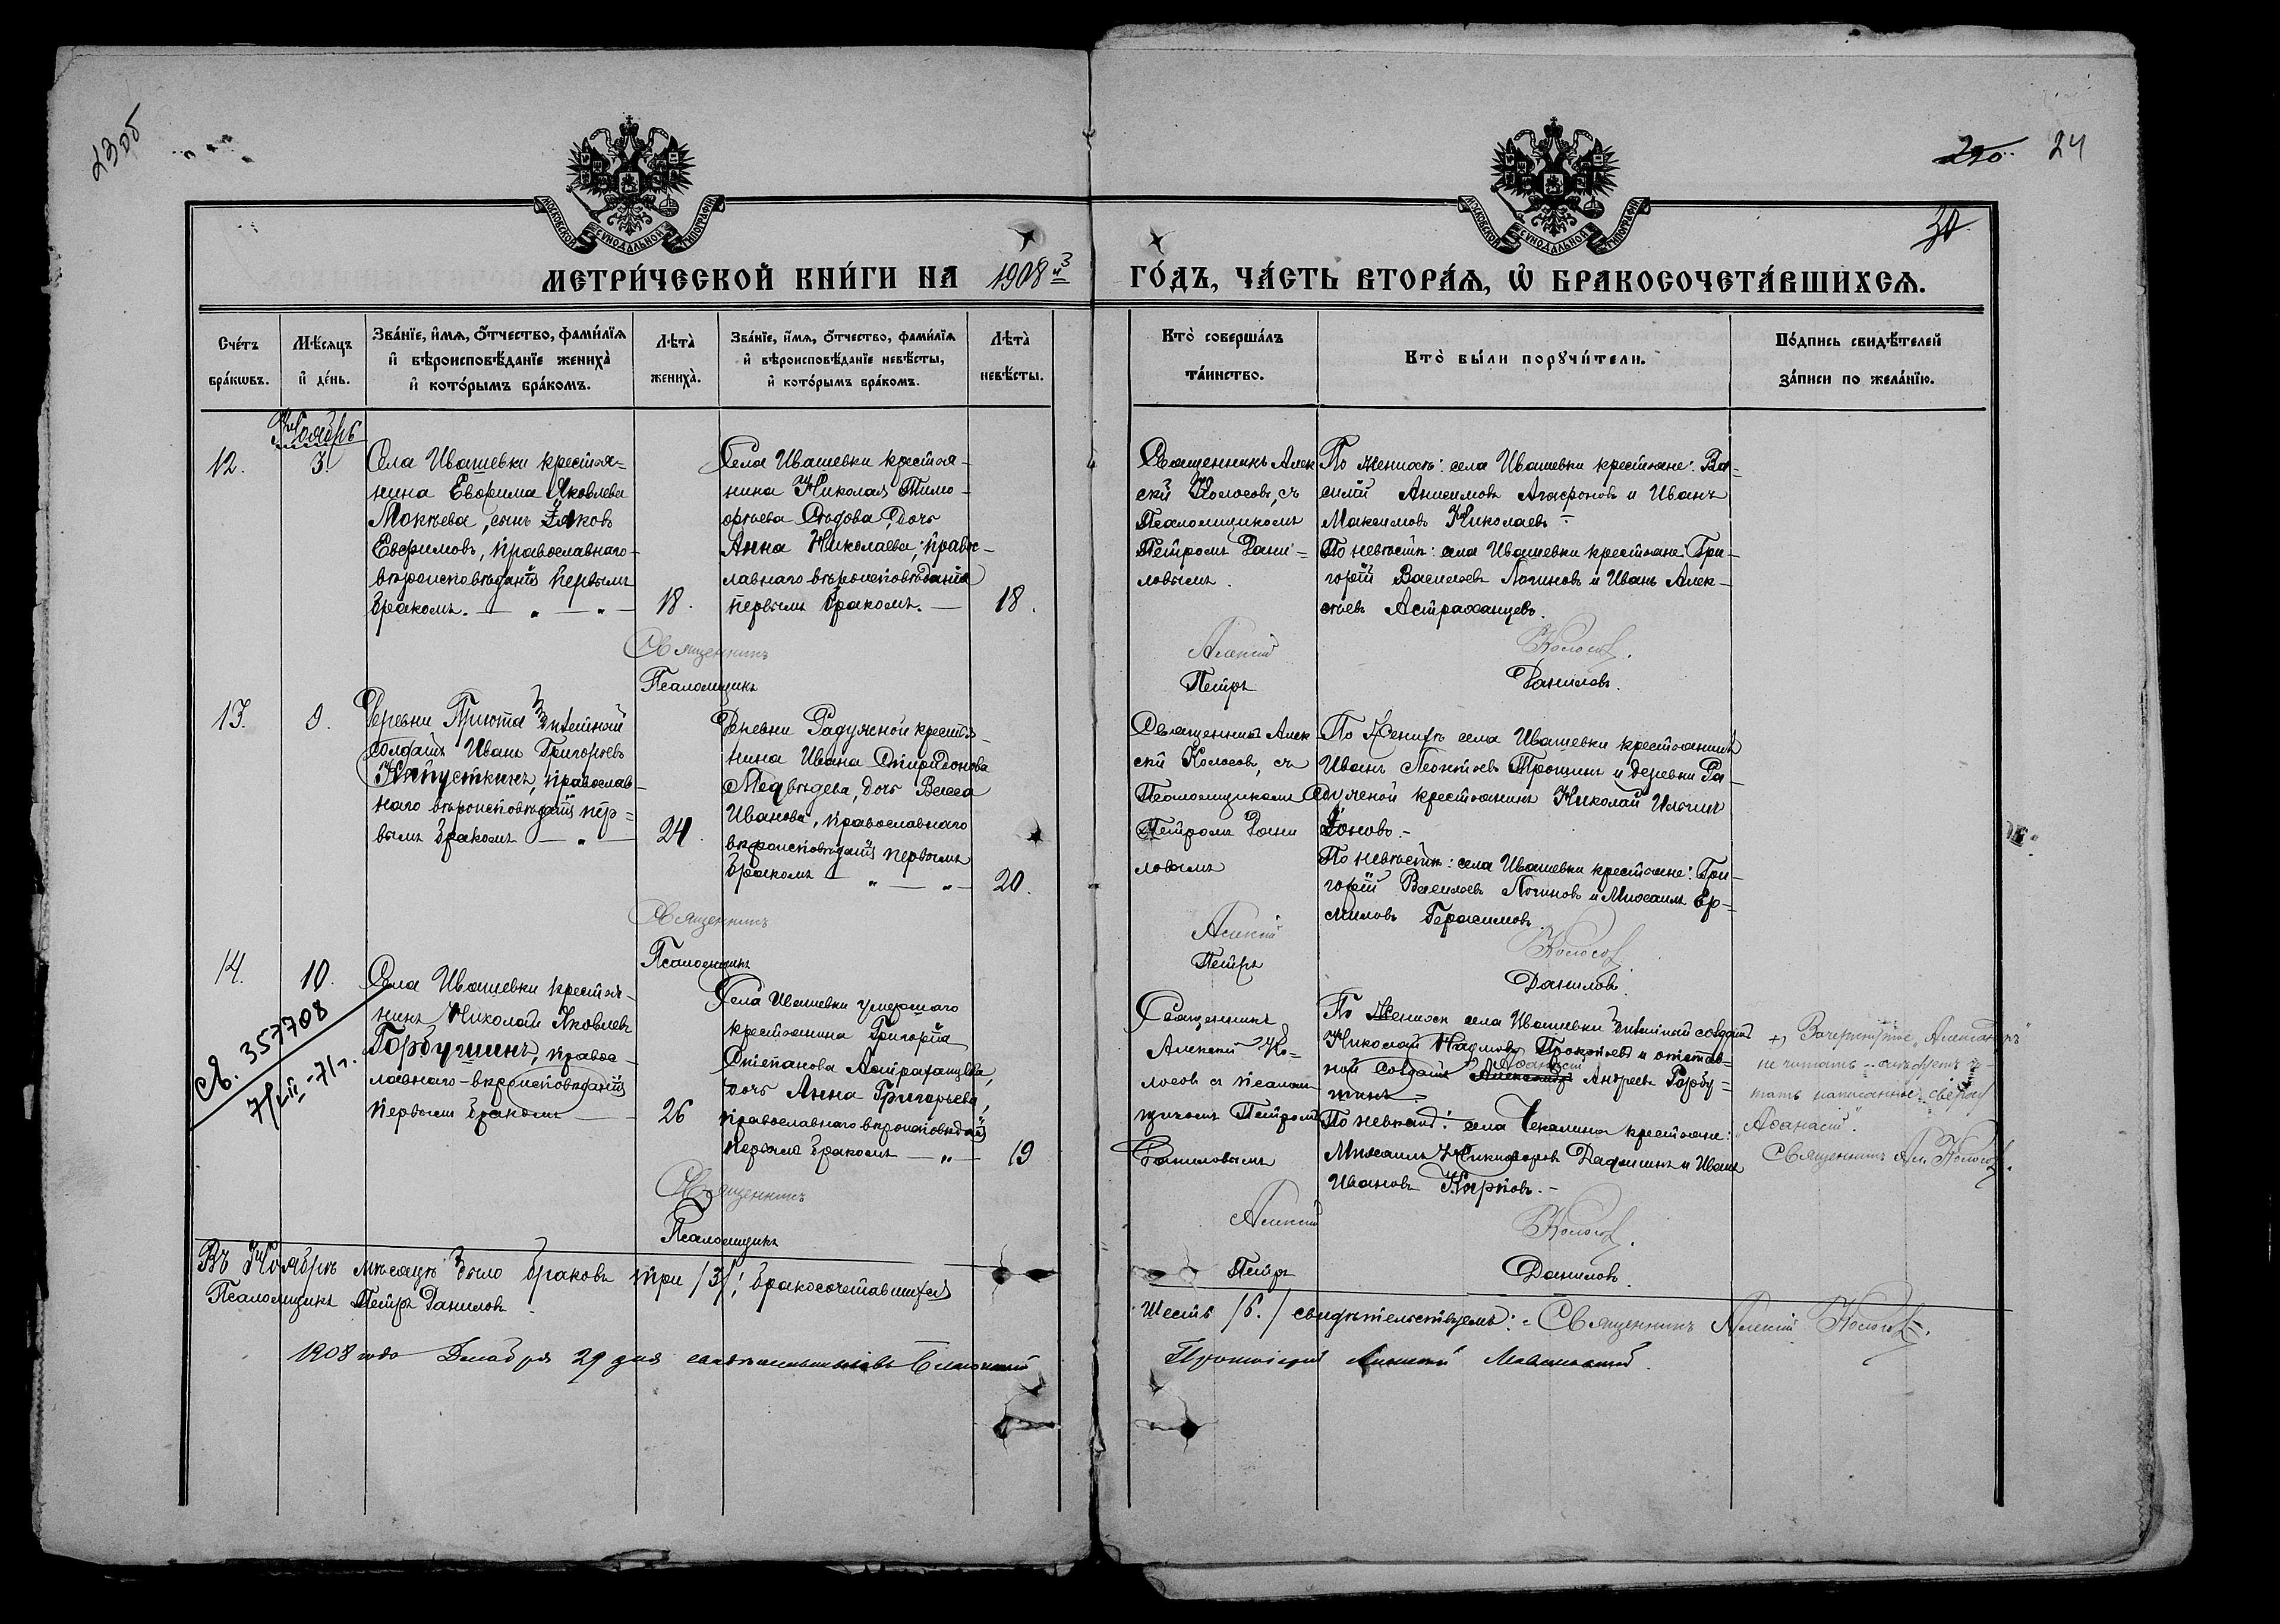 23 об
290. 24
30
МОСКОВСКОЙ СУНОДАЛЬНОЙ ТИПОГРАФІИ
МОСКОВСКОЙ СУНОДАЛЬНОЙ ТИПОГРАФІИ
МЕТРИ́ЧЕСКОЙ КНИ́ГИ НА 1908й ГО́ДЪ, ЧА́СТЬ ВТОРА́Ѧ, Ѽ БРАКОСОЧЕТА́ВШИХСѦ.
Сче́тъ бра́кѡвъ.
Мѣ́сяцъ и҆ де́нь.
Зва́нїе, и҆́мѧ, о҆́тчество, фами́лїѧ
и҆ вѣроисповѣ́данїе жениха̀
и҆ кото́рымъ бра́комъ.
Лѣта̀ жениха̀.
Зва́нїе, и҆́мѧ, о҆́тчество, фами́лїѧ
и҆ вѣроисповѣ́данїе невѣ́сты,
и҆ кото́рымъ бра́комъ.
Лѣта̀ невѣ́сты.
Кто̀ соверша́лъ та́инство.
Кто̀ бы́ли порꙋчи́тели.
По́дпись свидѣ́телей за́писи по жела́нїю.
Ноябрь
12.
3.
Села Ивашевки крестья-
нина Евфима Яковлева
Мокѣева, сынъ Іаковъ
Евфимовъ, православнаго
вѣроисповѣданія первымъ
бракомъ. — „ — „ —
18.
Села Ивашевки крестья-
нина Николая Тимо-
фѣева Сѣдова дочь
Анна Николаева, правос-
лавнаго вѣроисповѣданія
первымъ бракомъ. —
18.
Священникъ Алек
сѣй Колосовъ, съ
Псаломщикомъ
Петромъ Дани-
ловымъ.
По женихѣ: села Ивашевки крестьяне: Ва-
силій Анисимовъ Агафоновъ и Иванъ
Максимовъ Николаевъ. -
По невѣстѣ: села Ивашевки крестьяне: Гри-
горій Васильевъ Логиновъ и Иванъ Алек-
сѣевъ Астраханцевъ.
Священникъ Алексій Колосовъ.
Псаломщикъ Петръ Даниловъ.
13.
9.
Деревни Пріюта запасный
солдатъ Иванъ Григорьевъ
Капусткинъ, православ-
наго вѣроисповѣданія пер-
вымъ бракомъ — „ —
24.
Деревни Радученой крестья-
нина Ивана Спиридонова
Медвѣдева, дочь Васса
Иванова, православнаго
вѣроисповѣданія первымъ
бракомъ — „ — „ —
20.
Священникъ Алек
сѣй Колосовъ, съ
Псаломщикомъ
Петромъ Дани
ловымъ
По Женихѣ села Ивашевки крестьянинъ
Иванъ Леонтьевъ Трошинъ и деревни Ра-
дученой крестьянинъ Николай Ильинъ
По невѣстѣ: села Ивашевки крестьяне: Гри-
горій Васильевъ Логиновъ и Михаилъ Ер-
миловъ Герасимовъ.
Священникъ Алексій Колосовъ
Псаломщикъ Петръ Даниловъ.
14.
10.
Св. 357708
7/VII-71г.
Села Ивашевки крестья-
нинъ Николай Яковлевъ
Горбушинъ, правос-
лавнаго вѣроисповѣданія
первымъ бракомъ —
26
Села Ивашевки умершаго
крестьянина Григорія
Степанова Астраханцева,
дочь Анна Григорьева,
православнаго вѣроисповѣданія
первымъ бракомъ — „ —
19
Священникъ
Алексій Ко-
лосовъ съ псалом-
щикомъ Петромъ
Даниловымъ
По Женихѣ села Ивашевки запасный солдатъ
Николай Прокопьевъ и отстав-
ной солдатъ Александръ Аѳанасій Андреевъ Горбу-
шинъ -
По невѣстѣ: села Чекалина крестьяне:
Михаилъ Никифоровъ Дадушинъ и Иванъ
Ивановъ Карповъ. -
+) Зачеркнутое „Александръ"
не читать, а слѣдуетъ чи-
тать написанное сверху
„Аѳанасій".
Священникъ Ал. Колосовъ.
Священникъ Алексій Колосовъ.
Псаломщикъ Петръ Даниловъ.
Въ Ноябрѣ мѣсяцѣ было браковъ три /3/; бракосочетавшихся
шесть /6./ свидѣтельствуемъ: - Священникъ Алексій Колосовъ.
Псаломщикъ Петръ Даниловъ.
1908 года Декабря 29 дня свидѣтельствовалъ Благочинный
Протоіерей